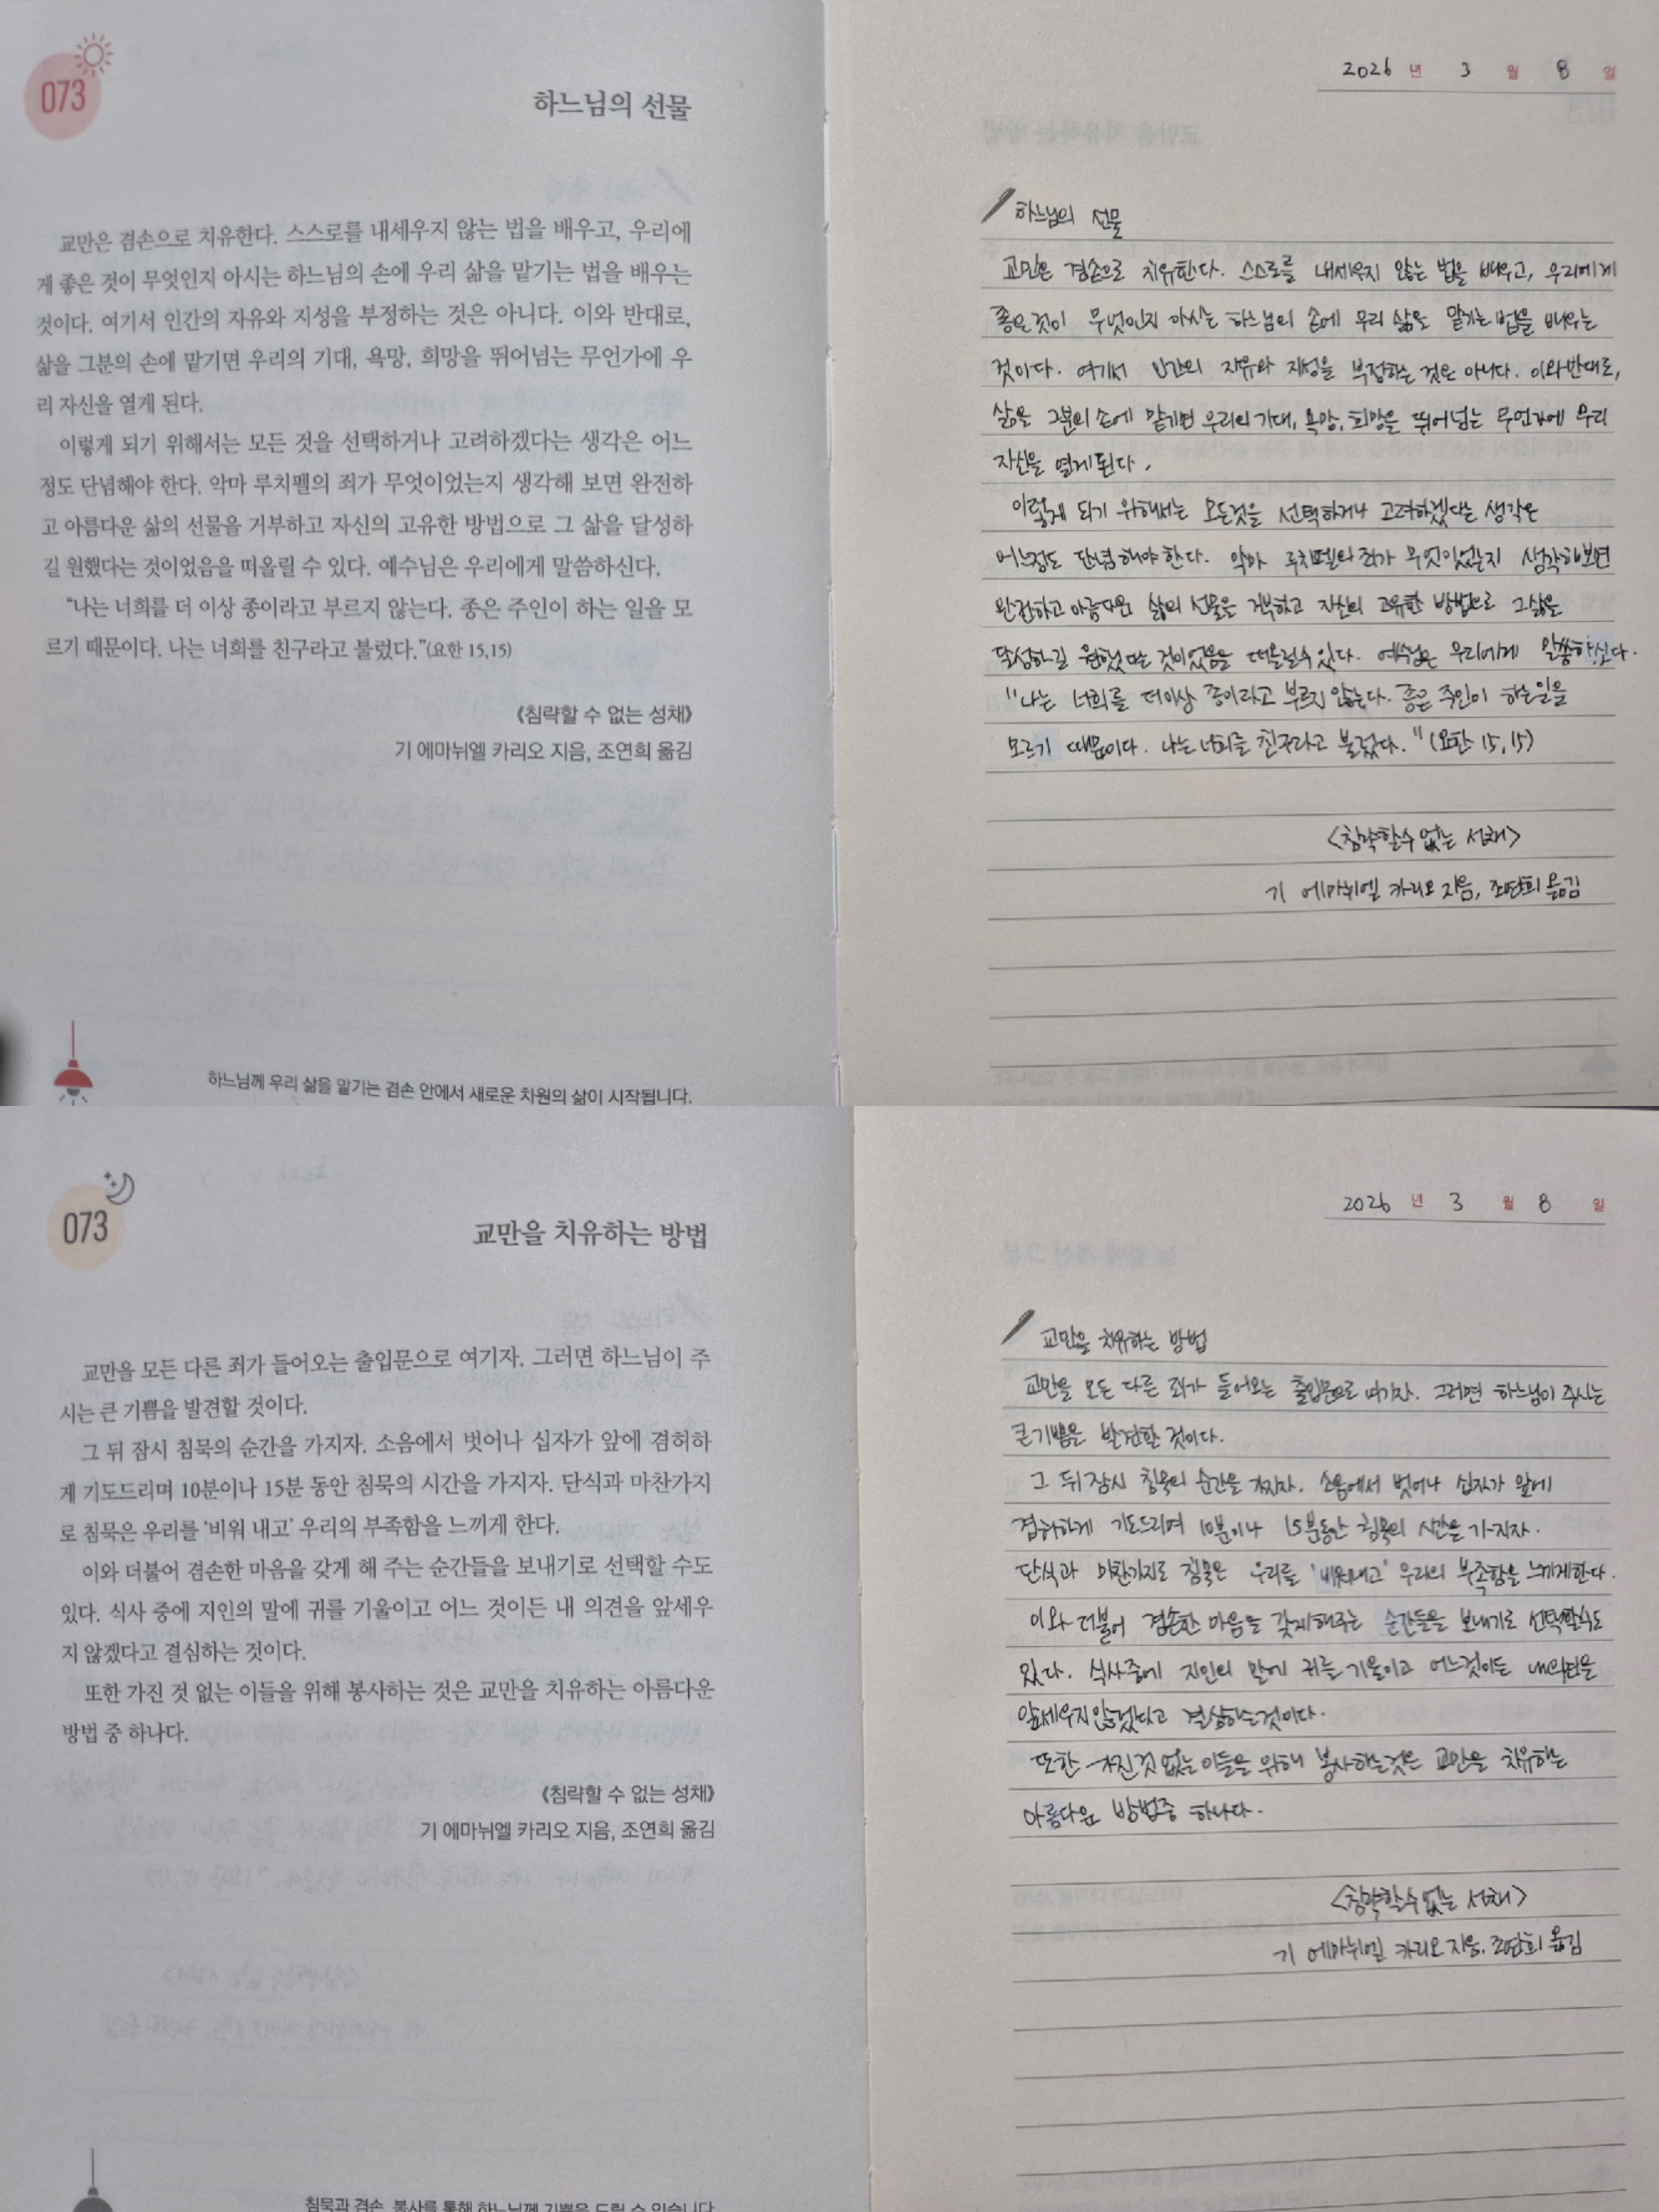 073
하느님의 선물
교만은 겸손으로 치유한다. 스스로를 내세우지 않는 법을 배우고, 우리에
게 좋은 것이 무엇인지 아시는 하느님의 손에 우리 삶을 맡기는 법을 배우는
것이다. 여기서 인간의 자유와 지성을 부정하는 것은 아니다. 이와 반대로,
삶을 그분의 손에 맡기면 우리의 기대, 욕망, 희망을 뛰어넘는 무언가에 우
리 자신을 열게 된다.
이렇게 되기 위해서는 모든 것을 선택하거나 고려하겠다는 생각은 어느
정도 단념해야 한다. 악마 루치펠의 죄가 무엇이었는지 생각해 보면 완전하
고 아름다운 삶의 선물을 거부하고 자신의 고유한 방법으로 그 삶을 달성하
길 원했다는 것이었음을 떠올릴 수 있다. 예수님은 우리에게 말씀하신다.
“나는 너희를 더 이상 종이라고 부르지 않는다. 종은 주인이 하는 일을 모
르기 때문이다. 나는 너희를 친구라고 불렀다.”(요한 15,15)
《침략할 수 없는 성채》
기 에마뉘엘 카리오 지음, 조연희 옮김
하느님께 우리 삶을 맡기는 겸손 안에서 새로운 차원의 삶이 시작됩니다.
2026 년 3 월 8 일
하느님의 선물
교만은 겸손으로 치유한다. 스스로를 내세우지 않는 법을 배우고, 우리에게
좋은것이 무엇인지 아시는 하느님의 손에 우리 삶을 맡기는 법을 배우는
것이다. 여기서 인간의 자유와 지성을 부정하는 것은 아니다. 이와반대로,
삶을 그분의 손에 맡기면 우리의 기대, 욕망, 희망을 뛰어넘는 무언가에 우리
자신을 열게 된다.
이렇게 되기 위해서는 모든것을 선택하거나 고려하겠다는 생각은
어느정도 단념해야 한다. 악마 루치펠의 죄가 무엇이었는지 생각해보면
완전하고 아름다운 삶의 선물을 거부하고 자신의 고유한 방법으로 그삶을
달성하길 원했다는 것이었음을 떠올릴수 있다. 예수님은 우리에게 말씀하신다.
"나는 너희를 더이상 종이라고 부르지 않는다. 종은 주인이 하는일을
모르기 때문이다. 나는 너희를 친구라고 불렀다." (요한 15,15)
<침략할수 없는 성채>
기 에마뉘엘 카리오 지음, 조연희 옮김
073
교만을 치유하는 방법
교만을 모든 다른 죄가 들어오는 출입문으로 여기자. 그러면 하느님이 주
시는 큰 기쁨을 발견할 것이다.
그 뒤 잠시 침묵의 순간을 가지자. 소음에서 벗어나 십자가 앞에 겸허하
게 기도드리며 10분이나 15분 동안 침묵의 시간을 가지자. 단식과 마찬가지
로 침묵은 우리를 ‘비워 내고’ 우리의 부족함을 느끼게 한다.
이와 더불어 겸손한 마음을 갖게 해 주는 순간들을 보내기로 선택할 수도
있다. 식사 중에 지인의 말에 귀를 기울이고 어느 것이든 내 의견을 앞세우
지 않겠다고 결심하는 것이다.
또한 가진 것 없는 이들을 위해 봉사하는 것은 교만을 치유하는 아름다운
방법 중 하나다.
《침략할 수 없는 성채》
기 에마뉘엘 카리오 지음, 조연희 옮김
침묵과 겸손, 봉사를 통해 하느님께 기쁨을 드릴 수 있습니다
2026 년 3 월 8 일
교만을 치유하는 방법
교만을 모든 다른 죄가 들어오는 출입문으로 여기자. 그러면 하느님이 주시는
큰기쁨을 발견할 것이다.
그 뒤 잠시 침묵의 순간을 가지자. 소음에서 벗어나 십자가 앞에
겸허하게 기도드리며 10분이나 15분동안 침묵의 시간을 가지자.
단식과 마찬가지로 침묵은 우리를 '비워내고' 우리의 부족함을 느끼게한다.
이와 더불어 겸손한 마음을 갖게해주는 순간들을 보내기로 선택할수도
있다. 식사중에 지인의 말에 귀를 기울이고 어느것이든 내의견을
앞세우지않겠다고 결심하는것이다.
또한 가진것 없는 이들을 위해 봉사하는것은 교만을 치유하는
아름다운 방법중 하나다.
<침략할수 없는 성채>
기 에마뉘엘 카리오 지음, 조연희 옮김